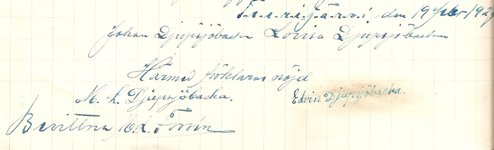 den 19 1929
Johan Djupsjöbacka Lovisa Djupsjöbacka
Härmed förklaras nöjd
M. h. Djupsjöbacka. Edvin Djupsjöbacka.
Bevittna